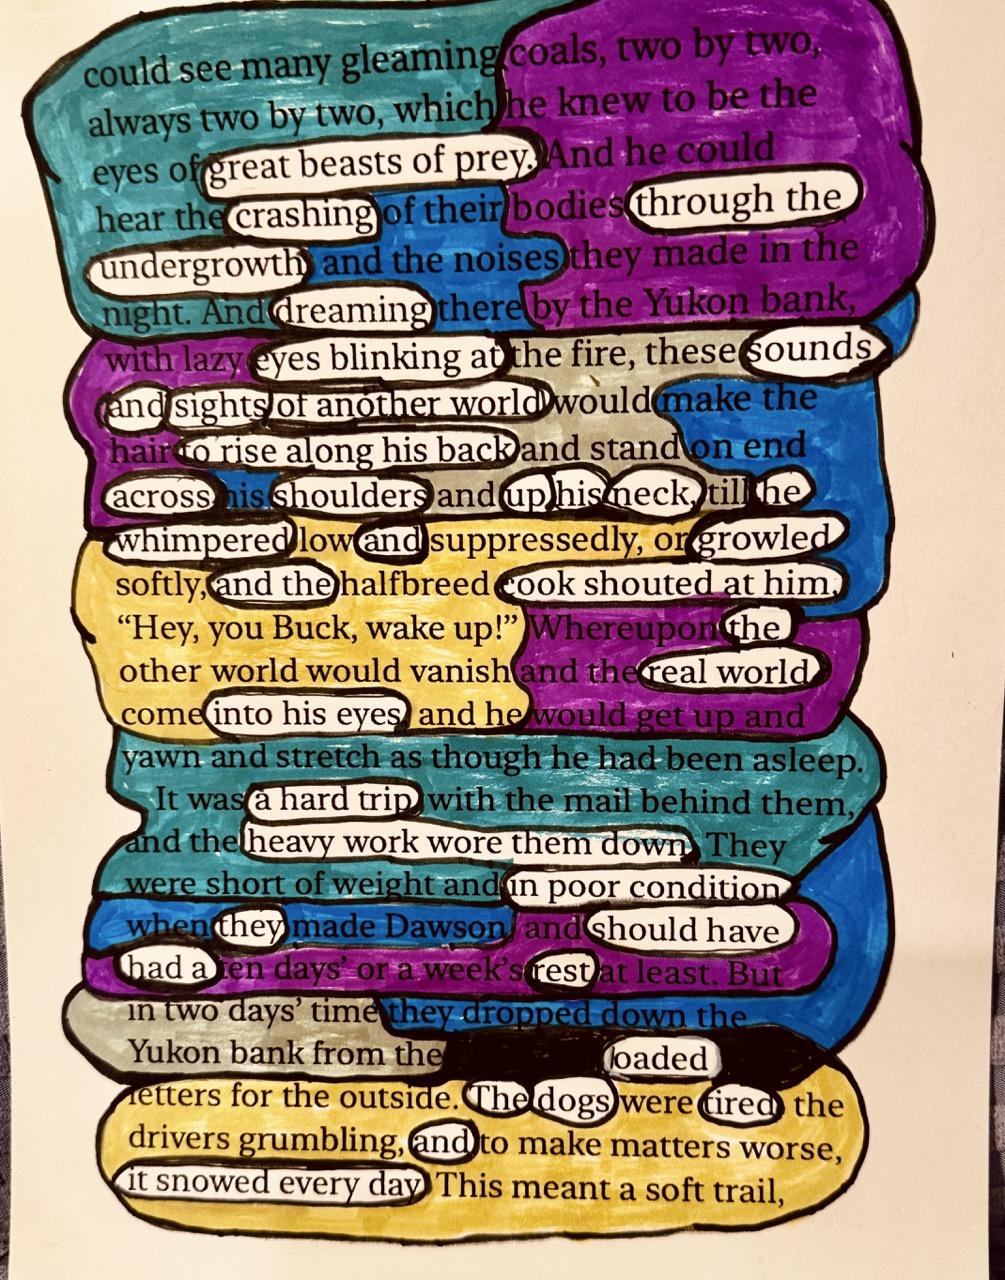 could see many gleaming coals, two by two,
always two by two, which he knew to be the
eyes of great beasts of prey. And he could
hear the crashing of their bodies through the
undergrowth and the noises they made in the
night. And dreaming there by the Yukon bank,
with lazy eyes blinking at the fire, these sounds
and sights of another world would make the
hair to rise along his back and stand on end
across his shoulders and up his neck, till he
whimpered low and suppressedly, or growled
softly, and the halfbreed cook shouted at him,
“Hey, you Buck, wake up!” Whereupon the
other world would vanish and the real world
come into his eyes, and he would get up and
yawn and stretch as though he had been asleep.
It was a hard trip, with the mail behind them,
and the heavy work wore them down. They
were short of weight and in poor condition
when they made Dawson, and should have
had a ten days’ or a week’s rest at least. But
in two days’ time they dropped down the
Yukon bank from the oaded
letters for the outside. The dogs were tired, the
drivers grumbling, and to make matters worse,
it snowed every day. This meant a soft trail,